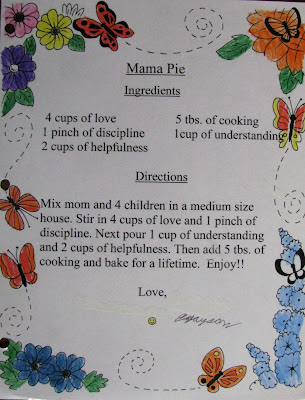 Mama Pie
Ingredients
4 cups of love 5 tbs. of cooking
1 pinch of discipline 1cup of understanding
2 cups of helpfulness
Directions
Mix mom and 4 children in a medium size
house. Stir in 4 cups of love and 1 pinch of
discipline. Next pour 1 cup of understanding
and 2 cups of helpfulness. Then add 5 tbs. of
cooking and bake for a lifetime. Enjoy!!
Love,